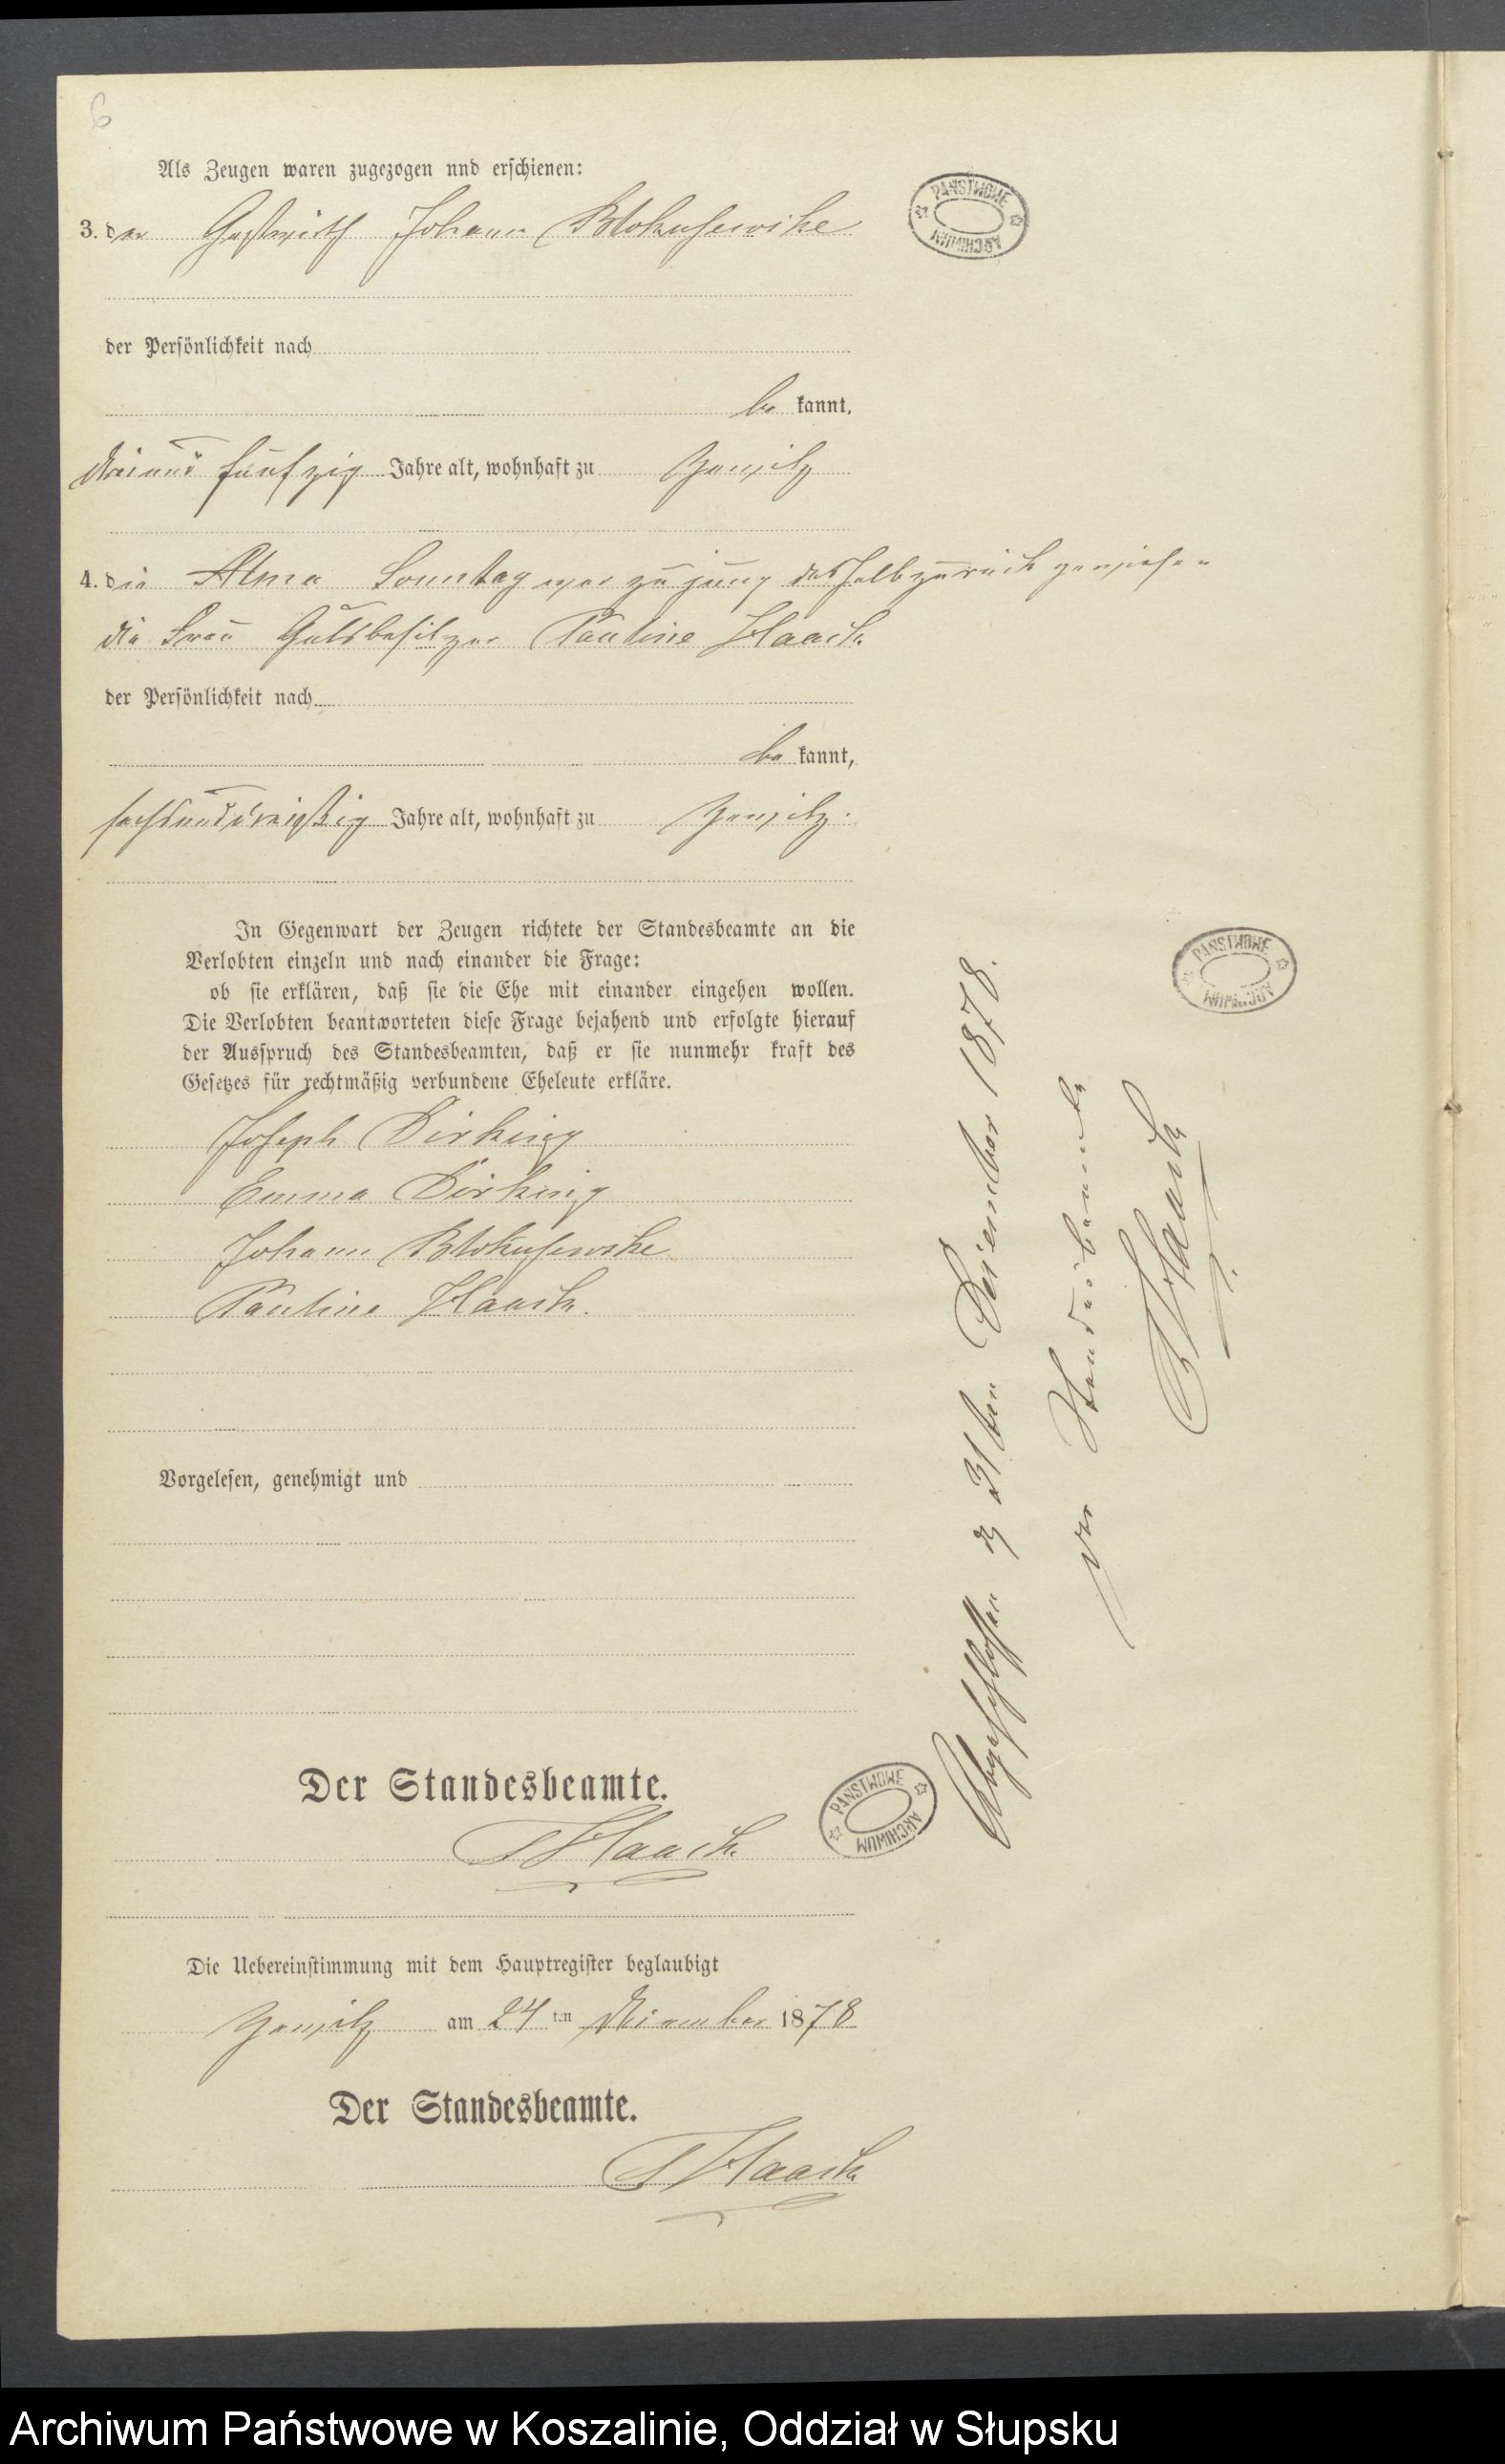 6
Als Zeugen waren zugezogen nnd erschienen:
3. der Gastwirth Johann Blokusewske
der Persönlichkeit nach
be kannt,
dreiund fünfzig Jahre alt, wohnhaft zu
4. die Alma Sonntag war zu jung deshalb zurück gewiesen
die Frau Gutsbesitzer Pauline Haack
der Persönlichkeit nach
be kannt,
sechsunddreißig Jahre alt, wohnhaft zu
In Gegenwart der Zeugen richtete der Standesbeamte an die
Verlobten einzeln und nach einander die Frage:
ob sie erklären, daß sie die Ehe mit einander eingehen wollen.
Die Verlobten beantworteten diese Frage bejahend und erfolgte hierauf
der Ausspruch des Standesbeamten, daß er sie nunmehr kraft des
Gesetzes für rechtmäßig verbundene Eheleute erkläre.
Joseph Dirking
Emma Dirking
Johann Blokusewske
Pauline Haack.
Vorgelesen, genehmigt und
Der Standesbeamte.
Haack
Die Uebereinstimmung mit dem Hauptregister beglaubigt
am 24 ten 1878
Der Standesbeamte.
Haack
Abgeschlossen d 31ten Dezember 1878.
Der Standesbeamte
Haack
PAŃSTWOWE ARCHIWUM
PAŃSTWOWE ARCHIWUM
PAŃSTWOWE ARCHIWUM
Archiwum Państwowe w Koszalinie, Oddział w Słupsku